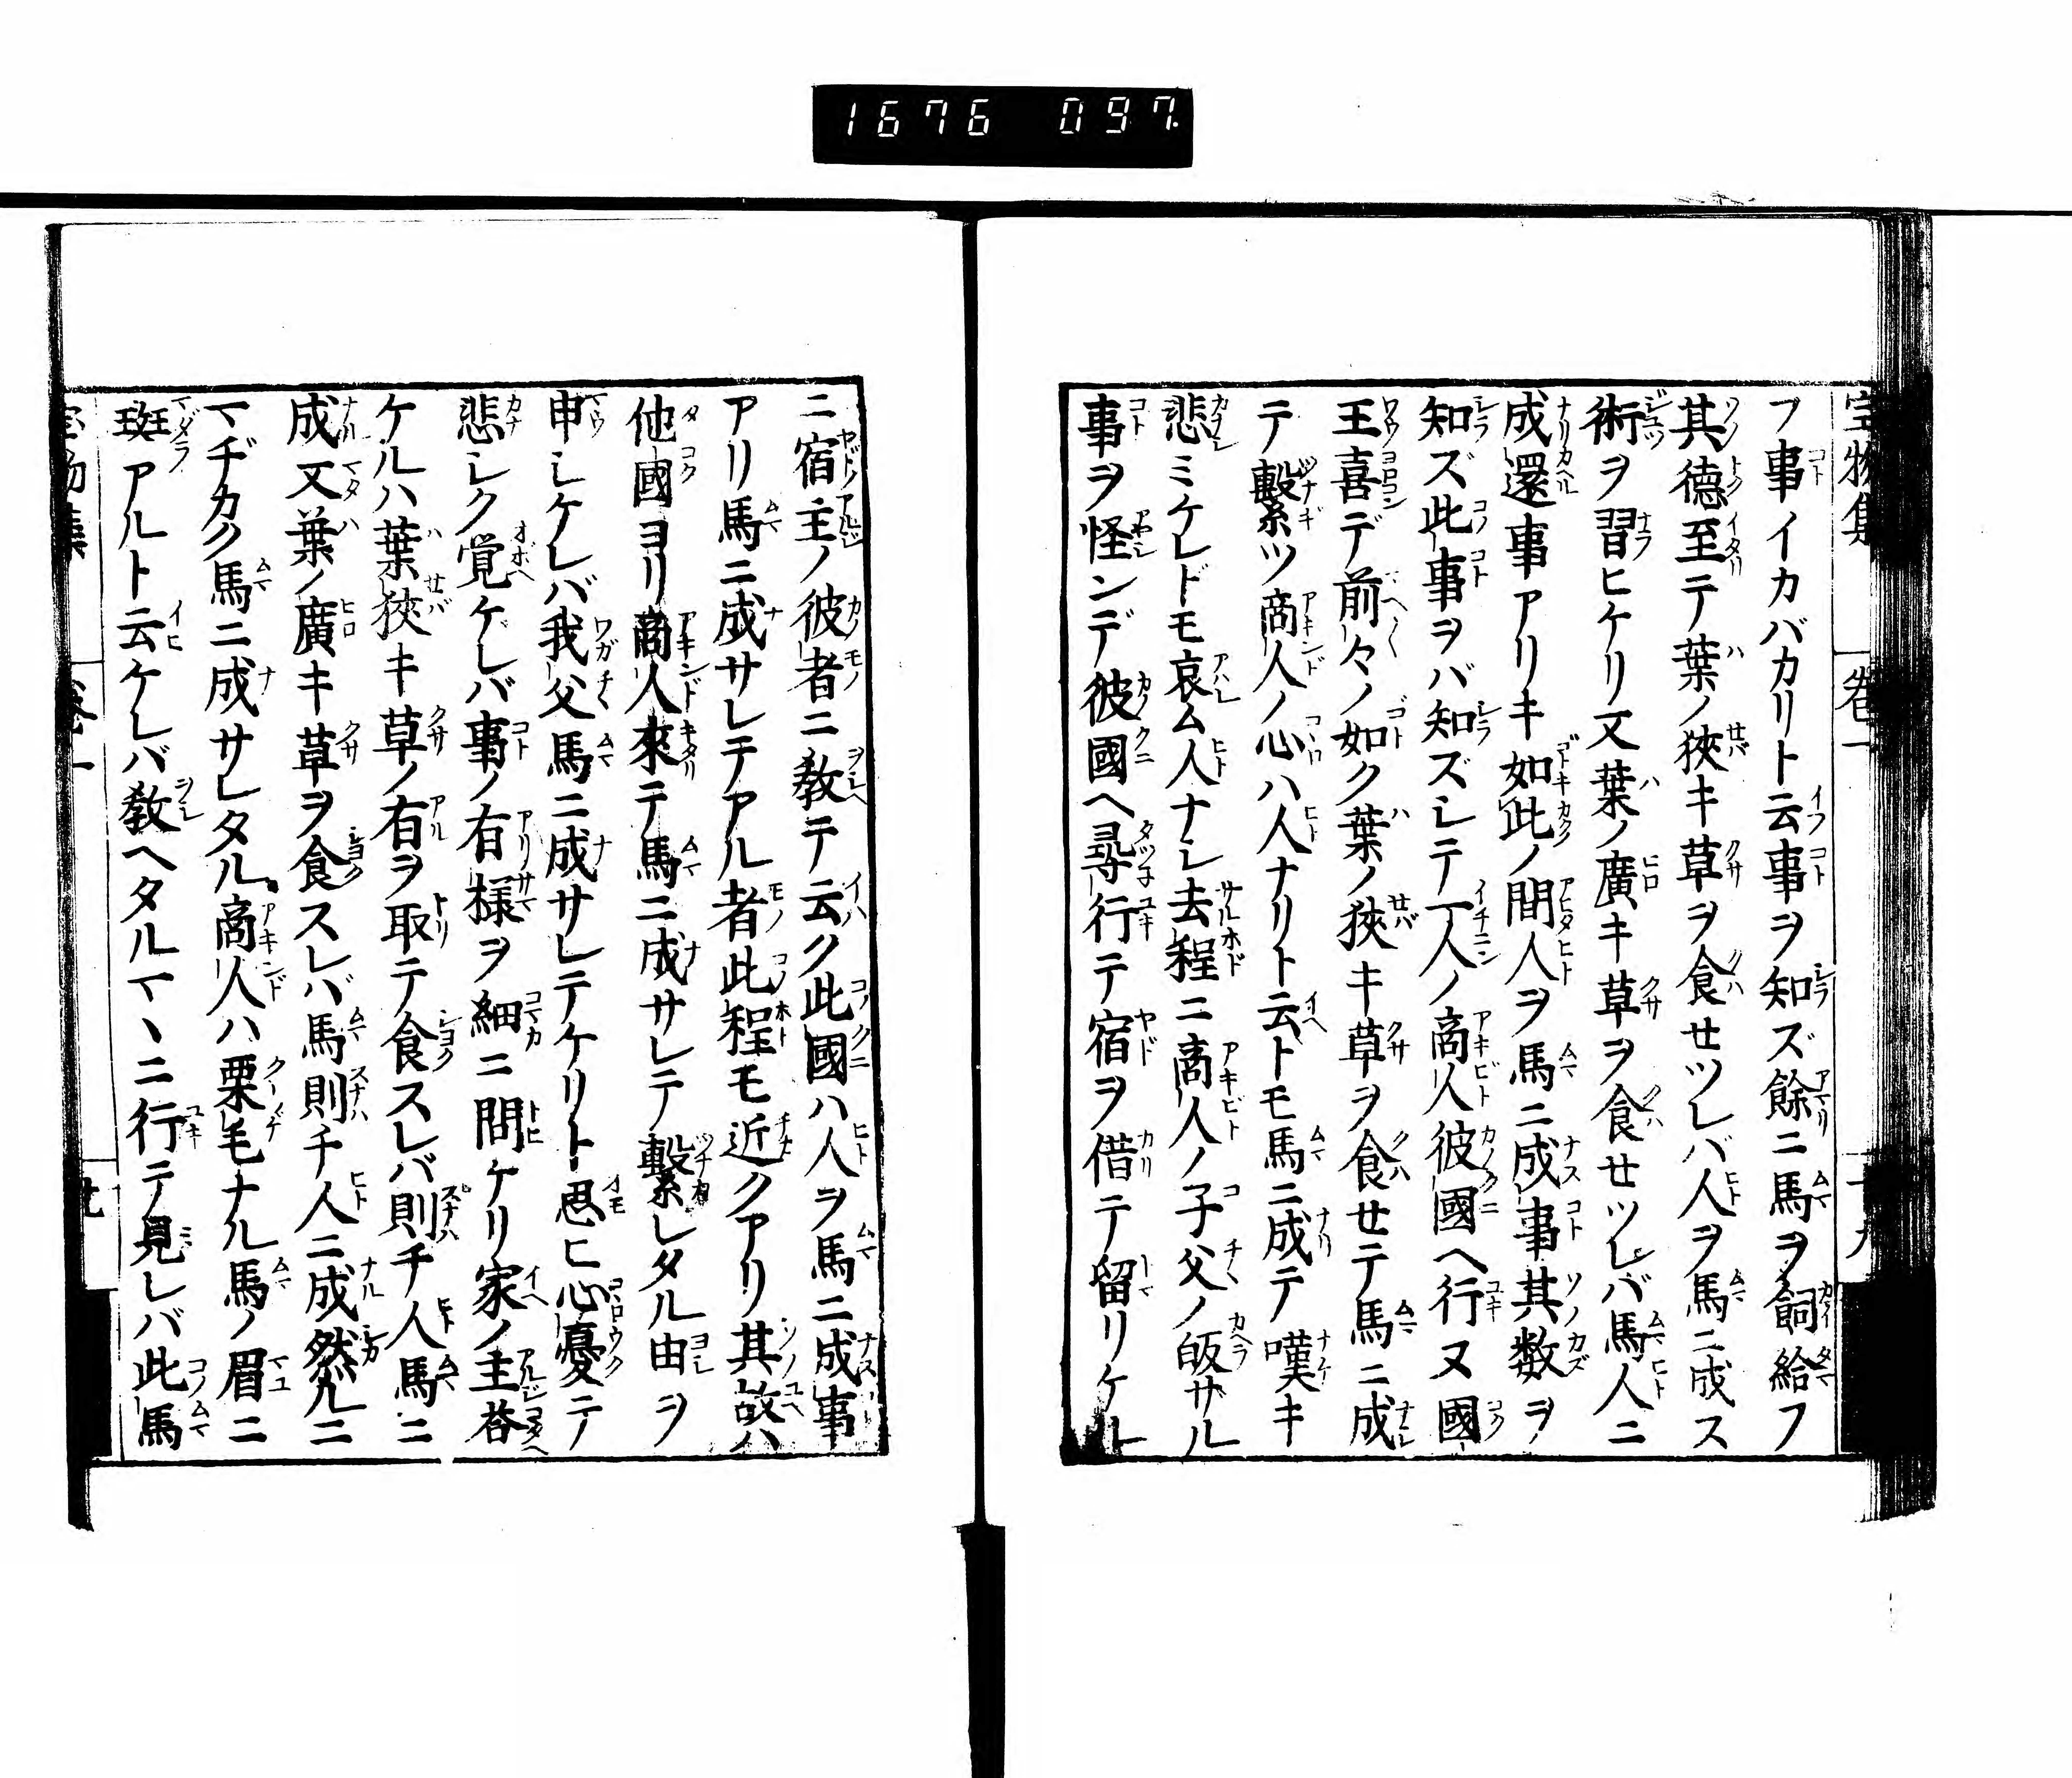 1676 097.
宝物集 卷一 十九
フ事イカバカリト云事ヲ知ズ餘ニ馬ヲ飼給フ
其德至テ葉ノ狹キ草ヲ食セツレバ人ヲ馬ニ成ス
術ヲ習ヒケリ又葉ノ廣キ草ヲ食セツレバ馬人ニ
成還事アリキ如此ノ間人ヲ馬ニ成事其数ヲ
知ズ此事ヲバ知ズシテ一人ノ商人彼國ヘ行ヌ國
王喜デ前々ノ如ク葉ノ狹キ草ヲ食セテ馬ニ成
テ繫ツ商人ノ心ハ人ナリト云トモ馬ニ成テ嘆キ
悲ミケレドモ哀ム人ナシ去程ニ商人ノ子父ノ皈ザル
事ヲ怪ンデ彼國ヘ尋行テ宿ヲ借テ留リケル
ニ宿主ノ彼者ニ敎テ云ク此國ハ人ヲ馬ニ成事
アリ馬ニ成サレテアル者此程モ近クアリ其故ハ
他國ヨリ商人來テ馬ニ成サレテ繫レタル由ヲ
申シケレバ我父馬ニ成サレテケリト思ヒ心憂テ
悲シク覚ケレバ事ノ有様ヲ細ニ問ケリ家ノ主荅
ケルハ葉狹キ草ノ有ヲ取テ食スレバ則チ人馬ニ
成又葉ノ廣キ草ヲ食スレバ馬則チ人ニ成然ルニ
マヂカク馬ニ成サレタル商人ハ栗毛ナル馬ノ眉ニ
斑アルト云ケレバ敎ヘタルマヽニ行テ見レバ此馬